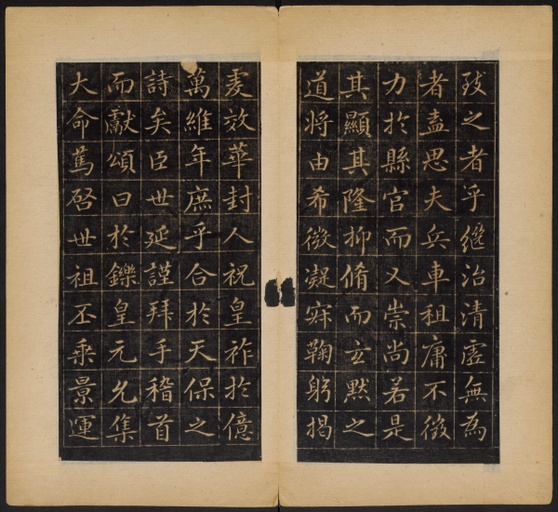 致之者乎繼治清虛無為
者盍思夫兵車祖庸不徴
力於縣官而又崇尚若是
其顯其隆抑脩而玄默之
道将由希微凝寂鞠躬揭
虔效華封人祝皇祚於億
萬維年庶乎合於天保之
詩矣臣世延謹拜手稽首
而獻頌曰於鑠皇元允集
大命篤啓世祖丕乗景運